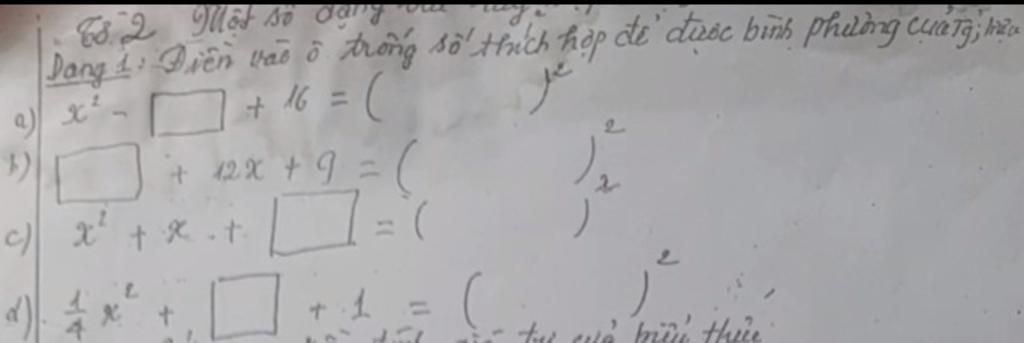 Một số dạng
Dạng 1: Điền vào ô trống số thích hợp để được bình phương của Tg, hiệu
a) x² - □ + 16 = ( )²
b) □ + 12x + 9 = ( )²
c) x² + x + □ = ( )²
d) 1/4 x² + □ + 1 = ( )²
biểu thức